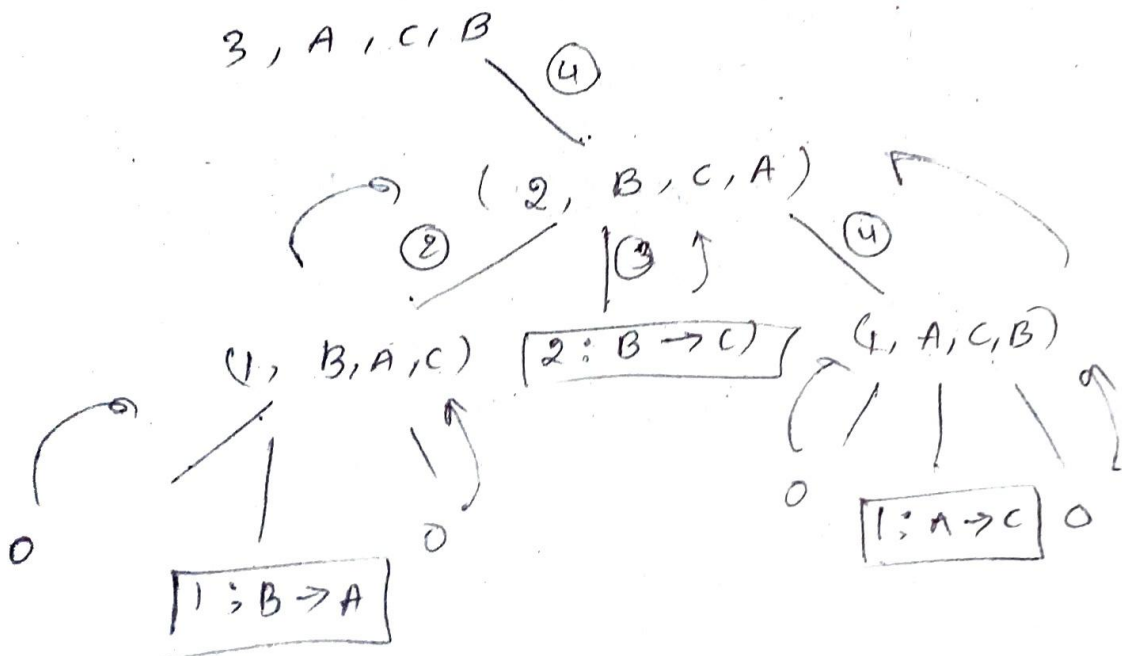 3, A, C, B
④
(2, B, C, A)
②
③
④
(1, B, A, C)
2: B → C)
(1, A, C, B)
0
1: B → A
0
0
1: A → C
0